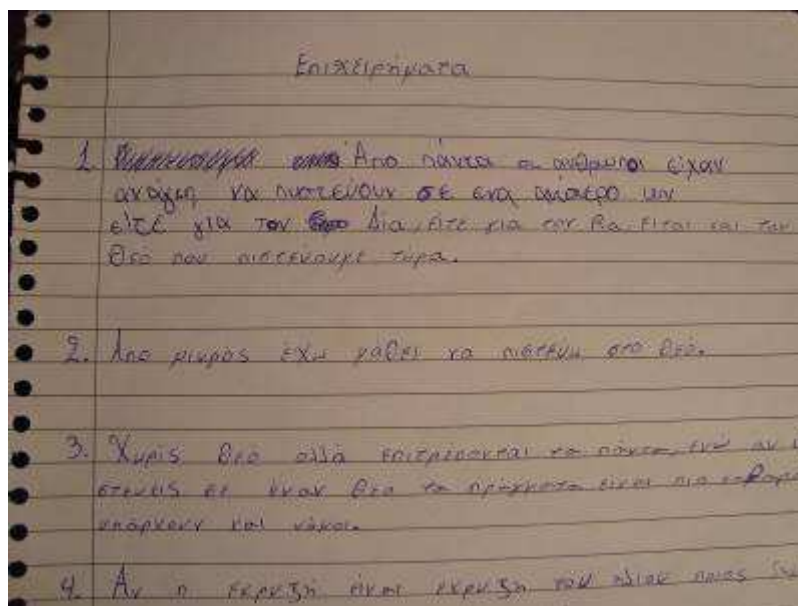 Επιχειρήματα
1. Απο πάντα οι άνθρωποι είχαν
ανάγκη να πιστεύουν σε ενα ανώτερο ων
είτε για τον Δία, είτε για τον Ρα, είται και τον
Θεό που πιστεύουμε τωρα.
2. Απο μικρος έχω μάθει να πιστεύω στο Θεό.
3. Χωρίς Θεό αλλά επιτρέπονται τα πάντα, ενώ αν
στευεις σε έναν Θεο τα πράγματα είναι πιο
υπάρχουν και νόμοι.
4. Αν η εκρυξή είναι εκρυξη του ηλιου ποιος